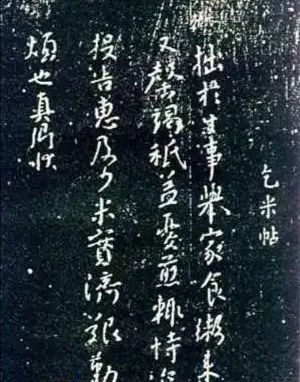 乞米帖
拙於生事舉家食粥来
又罄竭祗益憂煎輒恃深
投告惠及少米實濟艱勤
煩也真卿狀